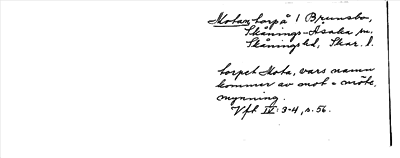 Motan, torp å / Brunsbo,
Skånings-Åsaka sn.
Skånings hd, Skar. l.
torpet Mota, vars namn
kommer av mot = möte,
mynning.
Vft IV: 3-4, s. 56.